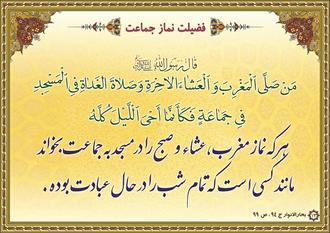 فضیلت نماز جماعت
قال رسول الله
مَن صَلَّی الْمَغْرِبَ وَ الْعَشاءَ الآخِرَةَ وَ صَلاةَ الْغَداةِ فِی الْمَسْجِدِ
فی جَماعَةٍ فَکَأَنَّما أَحْیَی اللَّیلَ کُلَّهُ
هر که نماز مغرب، عشاء و صبح را در مسجد به جماعت بخواند
مانند کسی است که تمام شب را در حال عبادت بوده.
بحارالانوار ج ۹۴، ص ۹۹